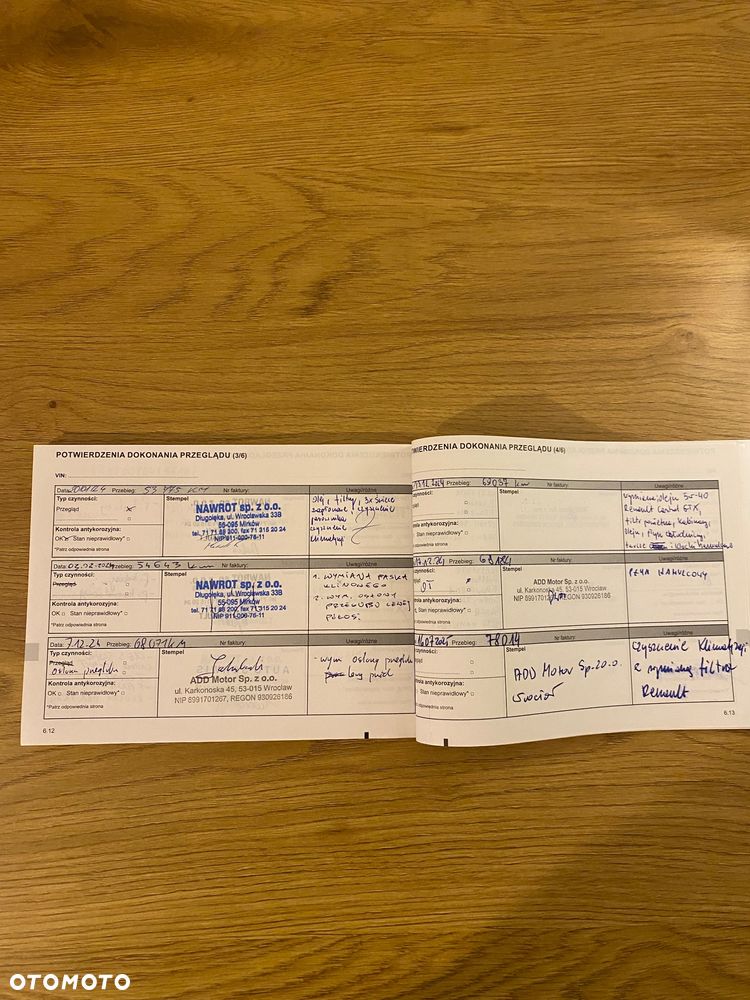 POTWIERDZENIA DOKONANIA PRZEGLĄDU (3/6)
VIN:
Data: Przebieg: 53 475 KM Nr faktury: Uwagi/różne
Typ czynności: Stempel
Przegląd x
Kontrola antykorozyjna:
OK Stan nieprawidłowy*
*Patrz odpowiednia strona
NAWROT sp. z o.o.
Długołęka, ul. Wrocławska 33B
55-095 Mirków
tel. 71 71 88 200, fax 71 315 20 24
NIP 911-000-76-11
olej, filtry,
Data: 02.02.2024 Przebieg: 54643 km Nr faktury: Uwagi/różne
Typ czynności: Stempel
Przegląd
Kontrola antykorozyjna:
OK Stan nieprawidłowy*
*Patrz odpowiednia strona
NAWROT sp. z o.o.
Długołęka, ul. Wrocławska 33B
55-095 Mirków
tel. 71 71 88 200, fax 71 315 20 24
NIP 911-000-76-11
1. WYMIANA PASKA
KLINOWEGO
2. WYM. OSŁONY
PRZEGUBU LEWEJ
PÓŁOSI
Data: 7.12.24 Przebieg: 68071KM Nr faktury: Uwagi/różne
Typ czynności: Stempel
Przegląd
osłona przegubu
Kontrola antykorozyjna:
OK Stan nieprawidłowy*
*Patrz odpowiednia strona
ADD Motor Sp. z o.o.
ul. Karkonoska 45, 53-015 Wrocław
NIP 8991701267, REGON 930926186
- wym osłony przegubu
lewy przód
6.12
TWIERDZENIA DOKONANIA PRZEGLĄDU (4/6)
12.2024 Przebieg: 68037 km Nr faktury: Uwagi/różne
czynności: Stempel
antykorozyjna:
Stan nieprawidłowy*
odpowiednia strona
wymiana oleju 5W-40
Renault Castrol GTX,
filtr powietrza, kabinowy,
oleju, płyn chłodniczy,
tarcze i klocki hamulcowe
17.12.24 Przebieg: 68121 Nr faktury: Uwagi/różne
czynności: Stempel
OT
antykorozyjna:
Stan nieprawidłowy*
odpowiednia strona
ADD Motor Sp. z o.o.
ul. Karkonoska 45, 53-015 Wrocław
NIP 8991701267, REGON 930926186
PŁYN HAMULCOWY
Przebieg: 78014 Nr faktury: Uwagi/różne
czynności: Stempel
antykorozyjna:
Stan nieprawidłowy*
odpowiednia strona
ADD Motor Sp. z o.o.
Czyszczenie Klimatyzacji
z wymianą filtra
Renault
6.13
OTOMOTO